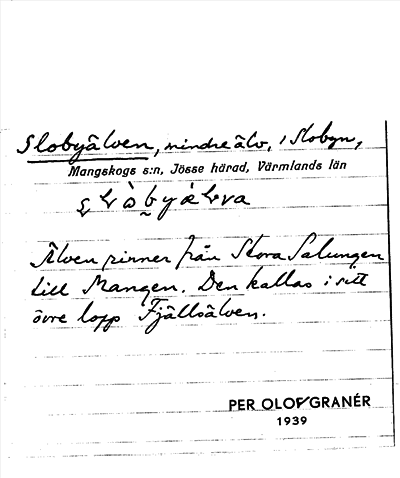 Slobyälven, mindre älv, i Slobyn,
Mangskogs s:n, Jösse härad, Värmlands län
Älven rinner från Stora Salungen
till Mangen. Den kallas i sitt
övre lopp Fjällsälven.
PER OLOF GRANÉR
1939